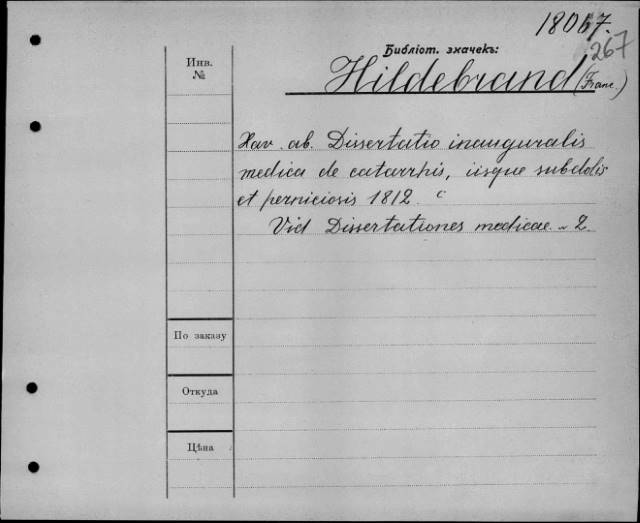 18067.
267
Библіот. значекъ:
Инв.
№
Hildebrand (Franc.)
Xav. ab. Dissertatio inauguralis
medica de catarrhis, iisque subdolis
et perniciosis 1812. c
Vid Dissertationes medicae. 2.
По заказу
Откуда
Цѣна